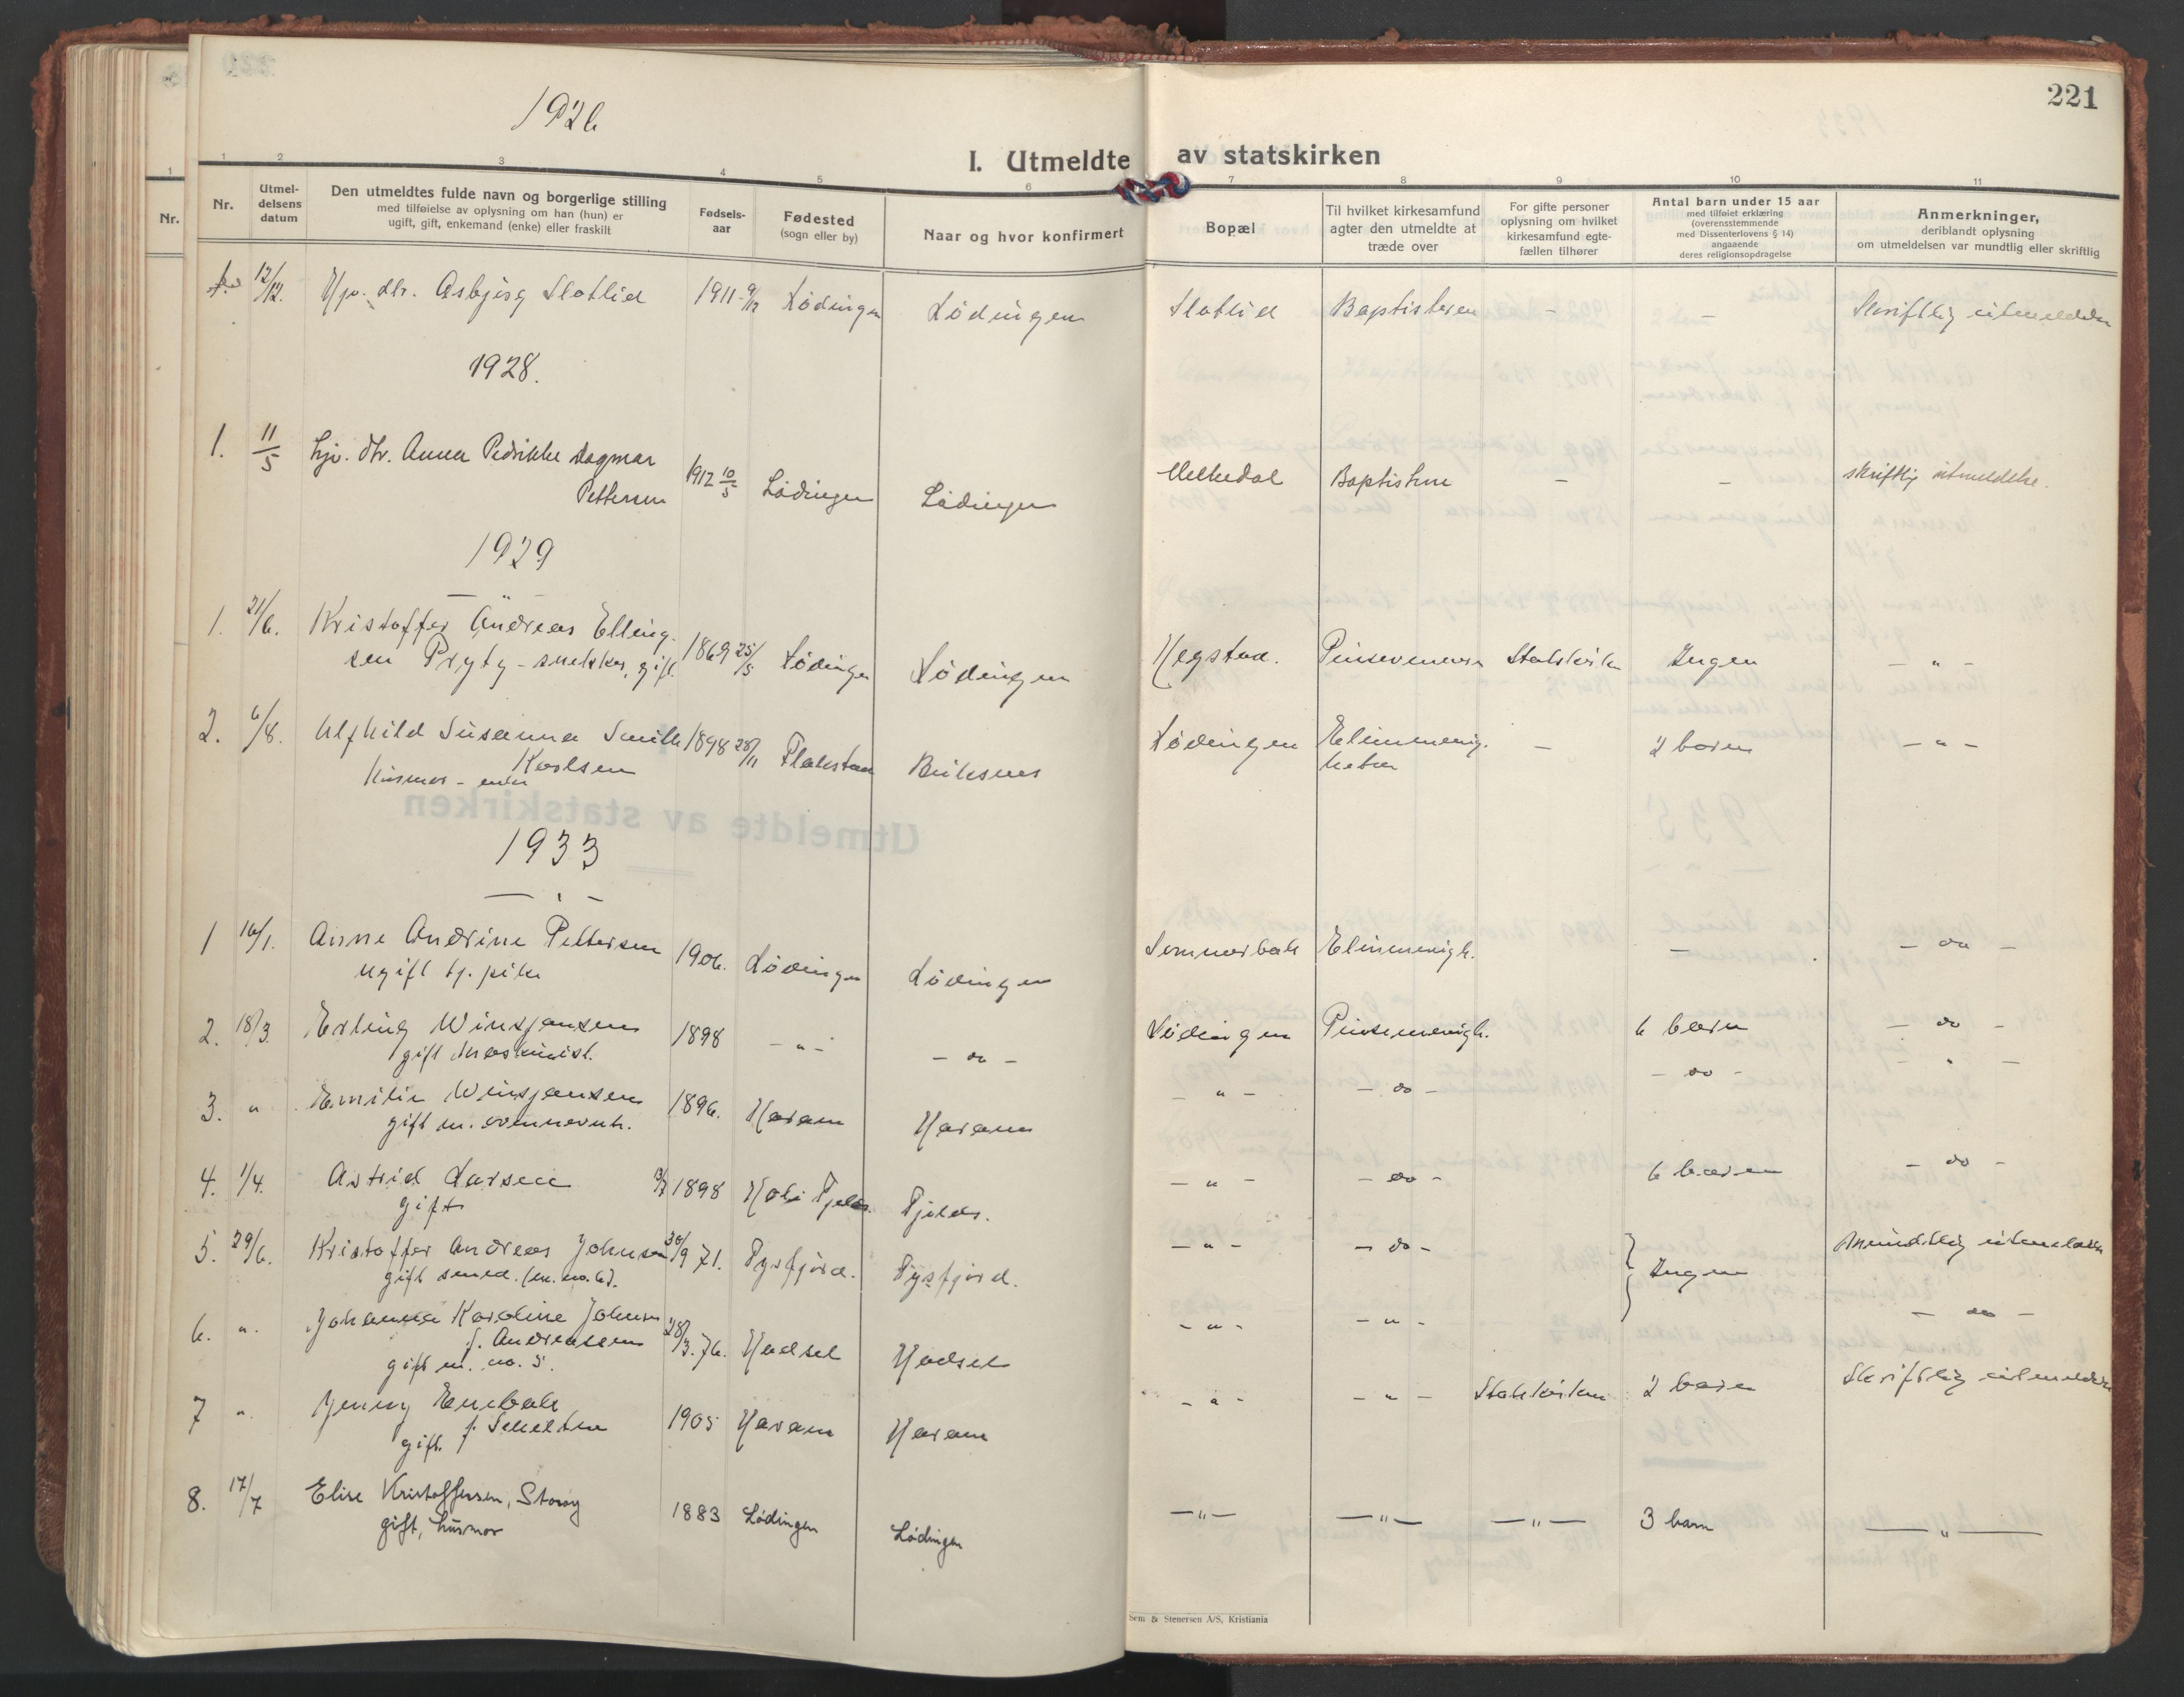 221
1926
I. Utmeldte av statskirken
1 2 3 4 5 6 7 8 9 10 11
Nr.
Nr. Utmel-delsens datum Den utmeldtes fulde navn og borgerlige stilling med tilføielse av oplysning om han (hun) er ugift, gift, enkemand (enke) eller fraskilt Fødsels-aar Fødested (sogn eller by) Naar og hvor konfirmert Bopæl Til hvilket kirkesamfund agter den utmeldte at træde over For gifte personer oplysning om hvilket kirkesamfund egte-fællen tilhører Antal barn under 15 aar med tilføiet erklæring (overensstemmende med Dissenterlovens § 14) angaaende deres religionsopdragelse Anmerkninger, deriblandt oplysning om utmeldelsen var mundtlig eller skriftlig
12/12. Hjv. dtr. Asbjørg Slotlid 1911 9/12 Lødingen Lødingen Slotlid Baptisteren - - Skriftlig utmeldelse
1928.
1. 11/5 Hjv. dtr. Anna Pedrikke Dagmar 1912 10/5 Lødingen Lødingen Melkedal Baptistene - - skriftlig utmeldelse.
Pettersen
1929
1. 21/6. Kristoffer Andreas Elling- 1869 25/5 Lødingen Lødingen Hegstad. Pinsevennene Statskirken Ingen - " -
sen Prytz - snekker, gift.
2. 6/8. Alfhild Susanna Smith 1898 28/11 Flakstad Buksnes Lødingen Elimmenig- - 2 barn - " -
Karlsen heten
Husmor - enke
1933
1 16/1. Anne Andrine Pettersen 1906. Lødingen Lødingen Sommerbak Elimmenigh. - - do -
ugift tj. pike
2. 18/3. Erling Winsjansen 1898 - " - - do - Lødingen Pinsemenigh. 6 barn - do -
gift Maskinist.
3. " Emilie Winsjansen 1896. Haram Haram - " - - do - - do - - " -
gift m. ovennevnte.
4. 1/4. Astrid Larsen 1898 Hol i Fjelds. Fjelds. - " - - do - 6 barn - do -
gift
5. 29/6. Kristoffer Andreas Johnsen 30/9 71. Tysfjord. Tysfjord. - " - - do - Ingen Mundtlig utmeldelse
gift smed. (m. no. 6).
6. " Johanna Karoline Johnsen 28/3. 76. Hadsel Hadsel - " - - " - - do -
f. Andreassen
gift m. no. 5.
7 " Jenny Enebak 1905 Haram Haram - " - - " - Statskirken 2 barn Skriftlig utmeldelse
gift f.
8. 17/7 Elise Kristoffersen, Storøy 1883 Lødingen Lødingen - " - - " - - " - 3 barn - " -
gift, husmor
Sem & Stenersen A/S, Kristiania